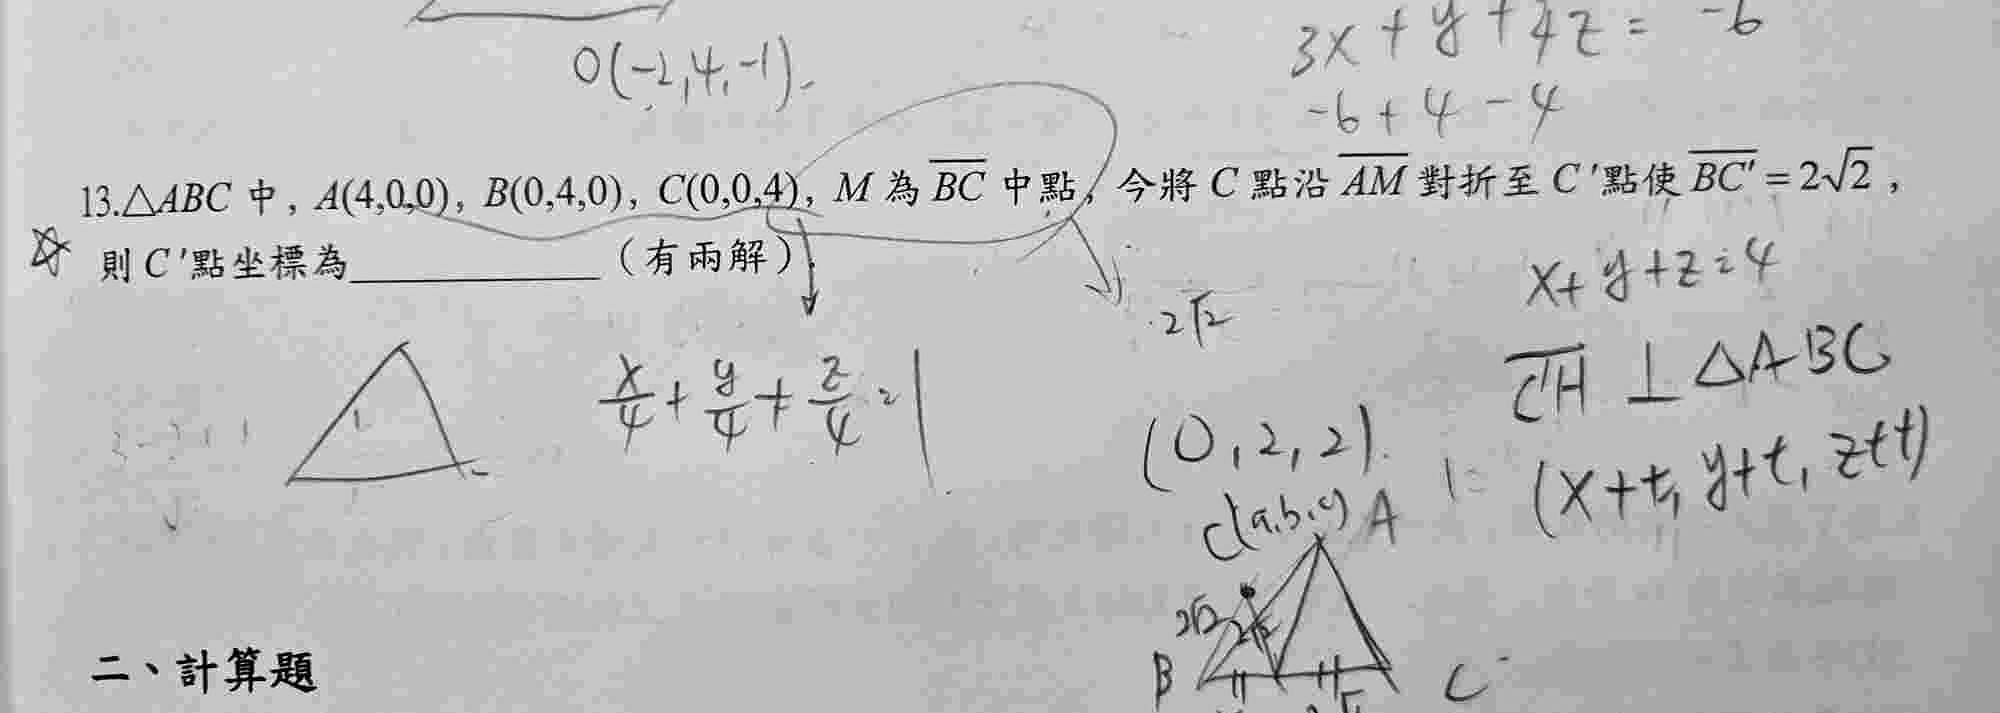 O(-2,4,-1).
3x+y+4z=-6
-6+4-4
13.△ABC 中, A(4,0,0), B(0,4,0), C(0,0,4), M 為 \overline{BC} 中點, 今將 C 點沿 \overline{AM} 對折至 C'點使 \overline{BC'} = 2√2,
☆ 則 C'點坐標為____________(有兩解)
x+y+z=4
2√2
\overline{C'H} ⊥ △ABC
x/4+y/4+z/4=1
(0,2,2)
(x+t, y+t, z+t)
C'(a,b,c) A
2√2 2√2
B C
二、計算題